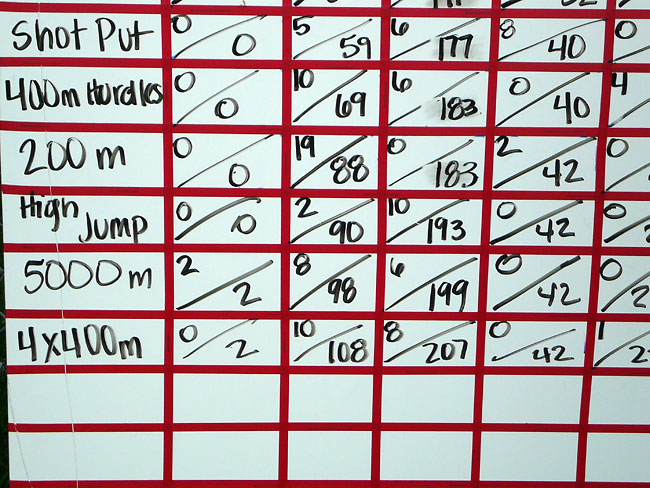 Shot Put 0/0 5/59 6/177 8/40 0
400m Hurdles 0/0 10/69 6/183 0/40 4
200 m 0/0 19/88 0/183 2/42 0
High Jump 0/0 2/90 10/193 0/42 0
5000 m 2/2 8/98 6/199 0/42 0
4x400m 0/2 10/108 8/207 0/42 1